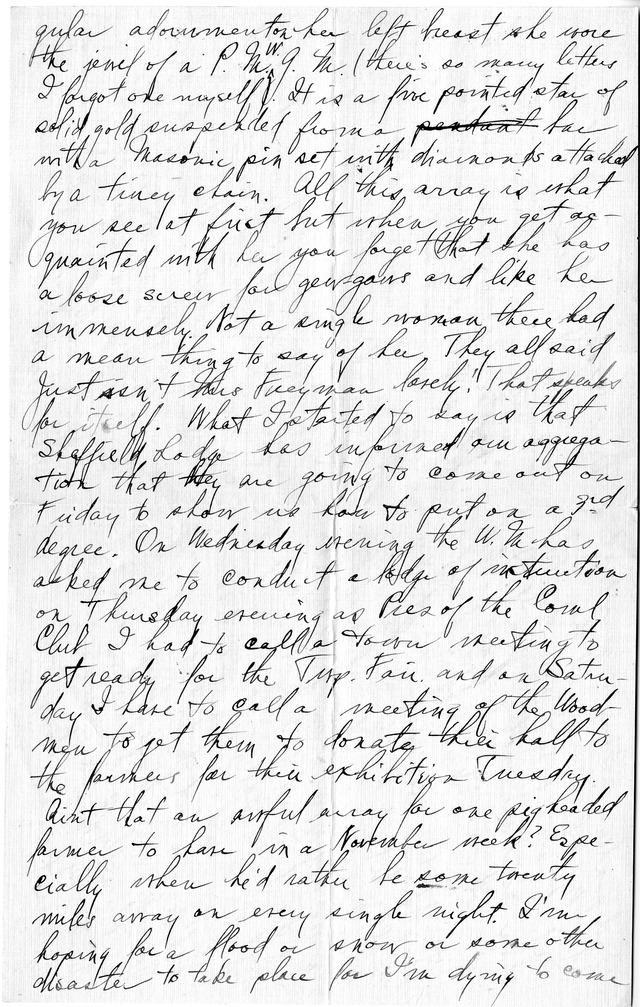 gular adornment on her left breast she wore
the jewel of a P. M. W. G. M. (there's so many letters
I forgot one myself). It is a five pointed star of
solid gold suspended from a pendant bar
with a Masonic pin set with diamonds attached
by a tiney chain. All this array is what
you see at first but when you get ac-
quainted with her you forget that she has
a loose screw for gewgaws and like her
immensely. Not a single woman there had
a mean thing to say of her. They all said
Just isn't Mrs Fueyman lovely! That speaks
for itself. What I started to say is that
Sheffield Lodge has informed our aggrega-
tion that they are going to come out on
Friday to show us how to put on a 3rd
degree. On Wednesday evening the W. M. has
asked me to conduct a lodge of instruction
on Thursday evening as Pres of the Coml
Club I had to call a town meeting to
get ready for the Twp. Fair. and on Satur-
day I have to call a meeting of the Wood-
men to get them to donate their hall to
the farmers for their exhibition Tuesday.
Aint that an awful array for one pigheaded
farmer to have in a November week? Espe-
cially when he'd rather be some twenty
miles away on every single night. I'm
hoping for a flood or snow or some other
disaster to take place for I'm dying to come